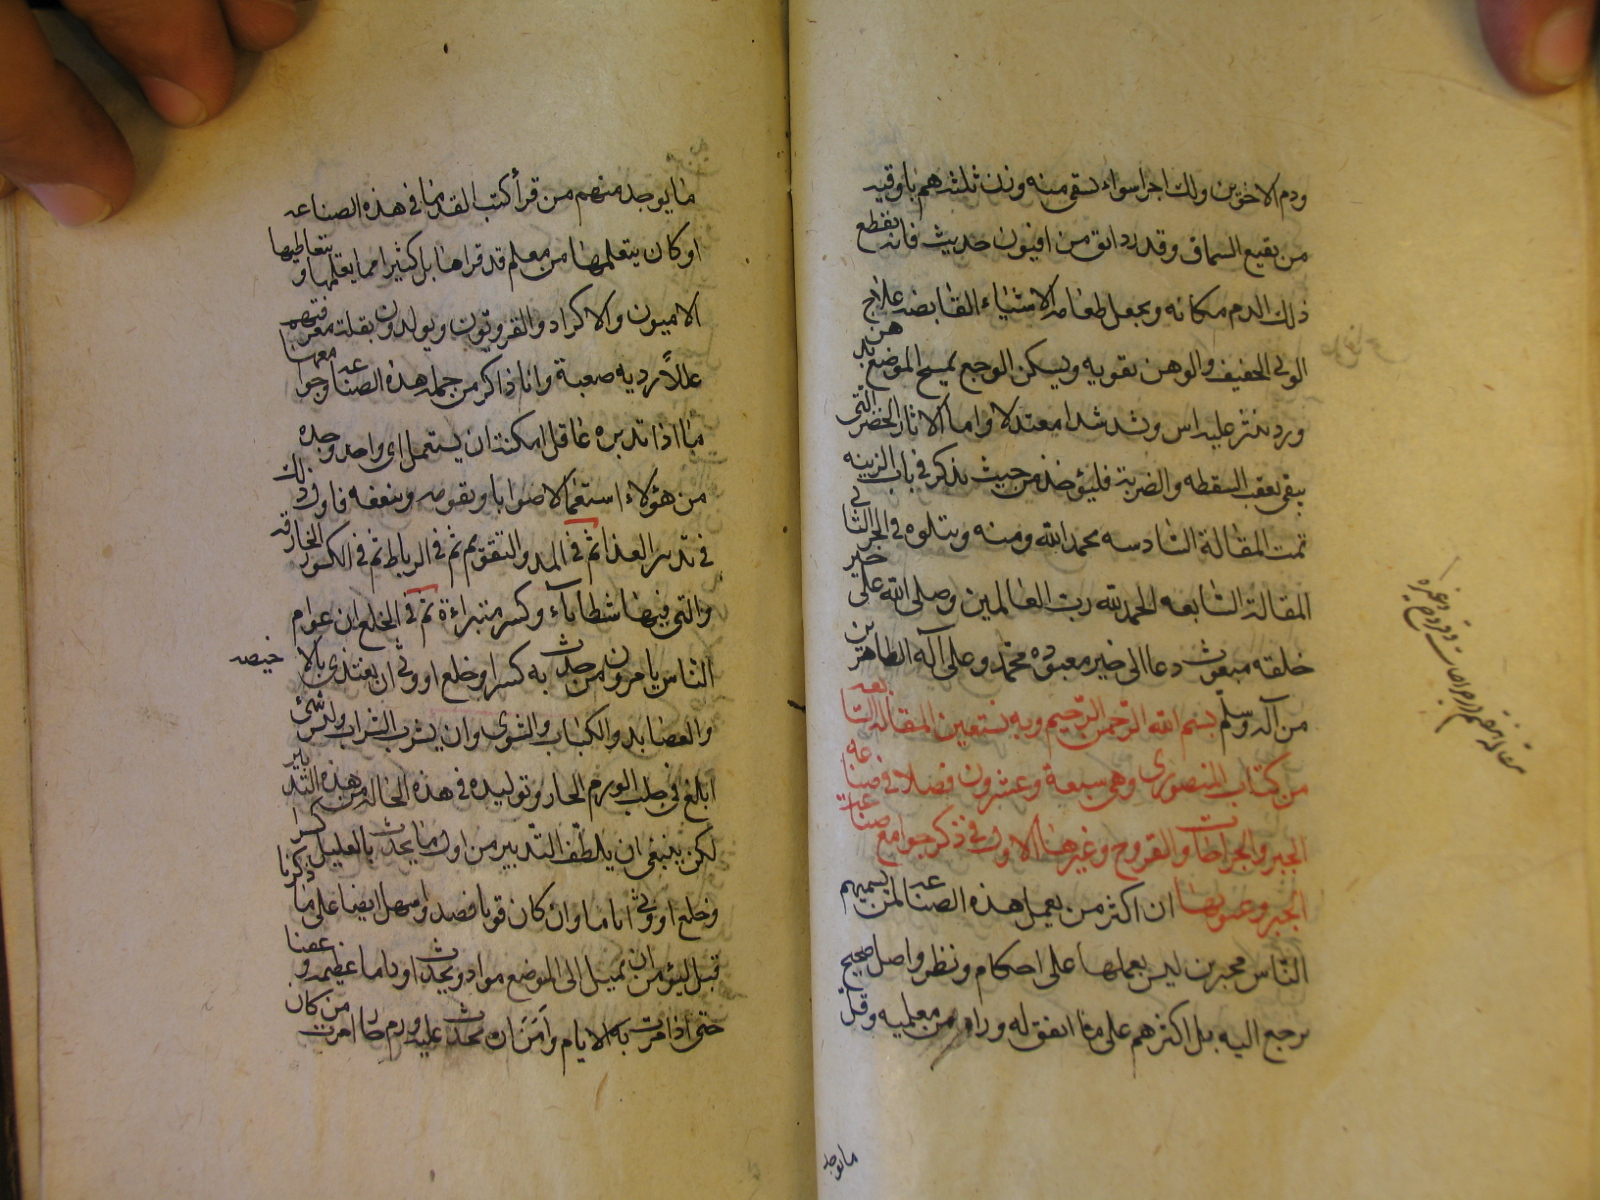 ودم الاخوين ولك اجزا سواء يسقى منه وزن ثلثه دهم باوقيه
من نقيع السماق وقدر دانق من افيون حديث فانه يقطع
ذلك الدم مكانه ويجعل طعامه الاشياء القابضه علاج
الوثى الخفيف والوهن يقويه ويسكن الوجع يمسح الموضع بدهن
ورد ينثر عليه اس ويشد شدا معتدلا واما الاثار الخضر التى
يبقى بعقب السقطه والضربة فليؤخذ من حيث يذكر فى باب الزينه
تمت المقالة السادسه بحمد الله ومنه ويتلوه فى الجزء الثانى
المقالة السابعه الحمد لله رب العالمين وصلى الله على خير
خلقه مبعوث دعا الى خير معبود محمد وعلى آله الطاهرين
من آله وسلم بسم الله الرحمن الرحيم وبه نستعين المقالة السابعه
من كتاب المنصورى وهى سبعة وعشرون فصلا فى صناعه
الجبر والجراحات والقروح وغيرها الاول فى ذكر جوامع صناعه
الجبر وعيوبها ان اكثر من يعمل هذه الصناعه لمن يسميهم
الناس مجبرين ليس يعملها على احكام ونظر واصل صحيح
يرجع اليه بل اكثرهم على ما اتفق له وراه من معلميه وقل
ما يوجد
ما يوجد منهم من قرأ كتب القدما فى هذه الصناعه
او كان يتعلمها من معلم قد قراها بل كثيرا مما يعلمها ويتعاطيها
الاميون والاكراد والقرويون ويولدون بقلة معرفتهم
عللاً رديه صعبة وانا ذاكر من جمله هذه الصناعه وجوامعها
ما اذا تدبره عاقل امكنه ان يستعمل اى واحد وجده
من هؤلاء استعمالا صوابا ويقومه وينفعه فاول ذلك
فى تدبير الغذا ثم فى المد والتقويم ثم فى الرباط ثم فى الكسور الخارقه
والتى فيها شظايا وكسر متبراءة ثم فى الخلع ان عوام
الناس يامرون من حدث به كسر او خلع او وثى ان يغتذى بالا
خبصه
والعصايد والكباب والشوى وان يشرب الشراب وليس شئ
ابلغ فى جلب الورم الحار وتوليده فى هذه الحاله من هذه التدبير
لكن ينبغى ان يلطف التدبير من اول ما يحدث بالعليل كسر
وخلع او وثى اياما وان كان قويا فصد واسهل ايضا على ما ذكرنا
قبل ليؤمن ان يميل الى الموضع مواد ويحدث اوراما عظيمه وعفنا
حتى اذا مرت به الايام وأمن ان يحدث عليه ورم حار امرت من كان